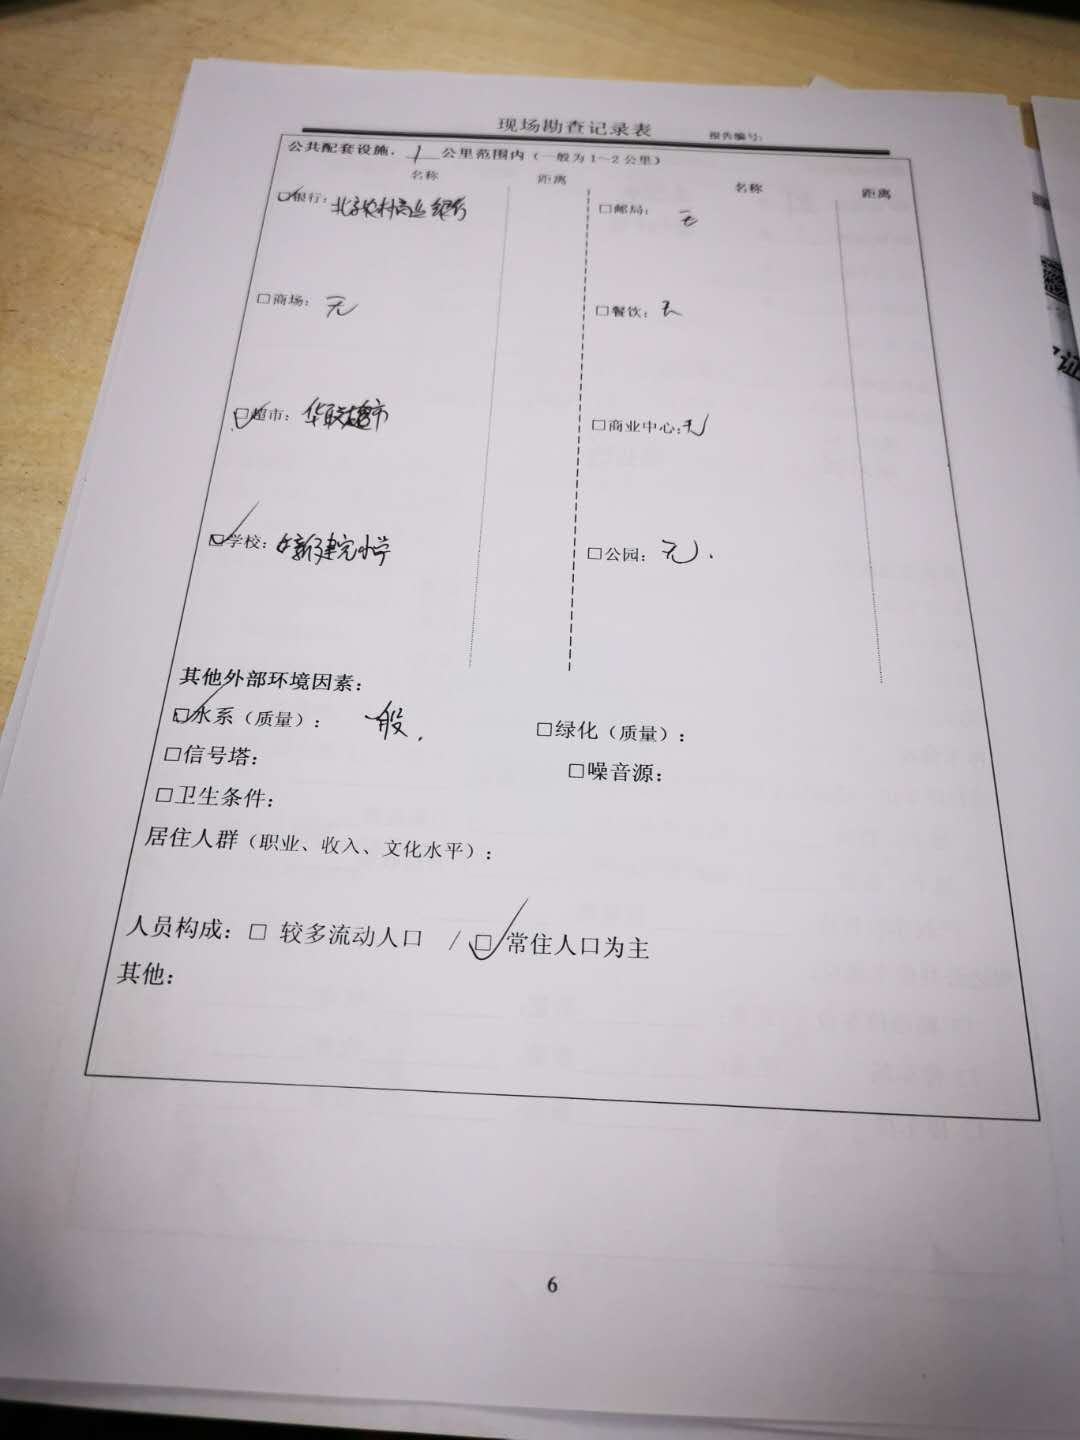 现场勘查记录表 报告编号:
公共配套设施: 1 公里范围内(一般为1~2公里)
名称 距离 名称 距离
☑银行: 北京农村商业银行 □邮局: 无
□商场: 无 □餐饮: 无
☑超市: 华联超市 □商业中心: 无
☑学校: 新建宫小学 □公园: 无.
其他外部环境因素:
☑水系(质量): 一般. □绿化(质量):
□信号塔: □噪音源:
□卫生条件:
居住人群(职业、收入、文化水平):
人员构成: □ 较多流动人口 / ☑ 常住人口为主
其他:
6
证